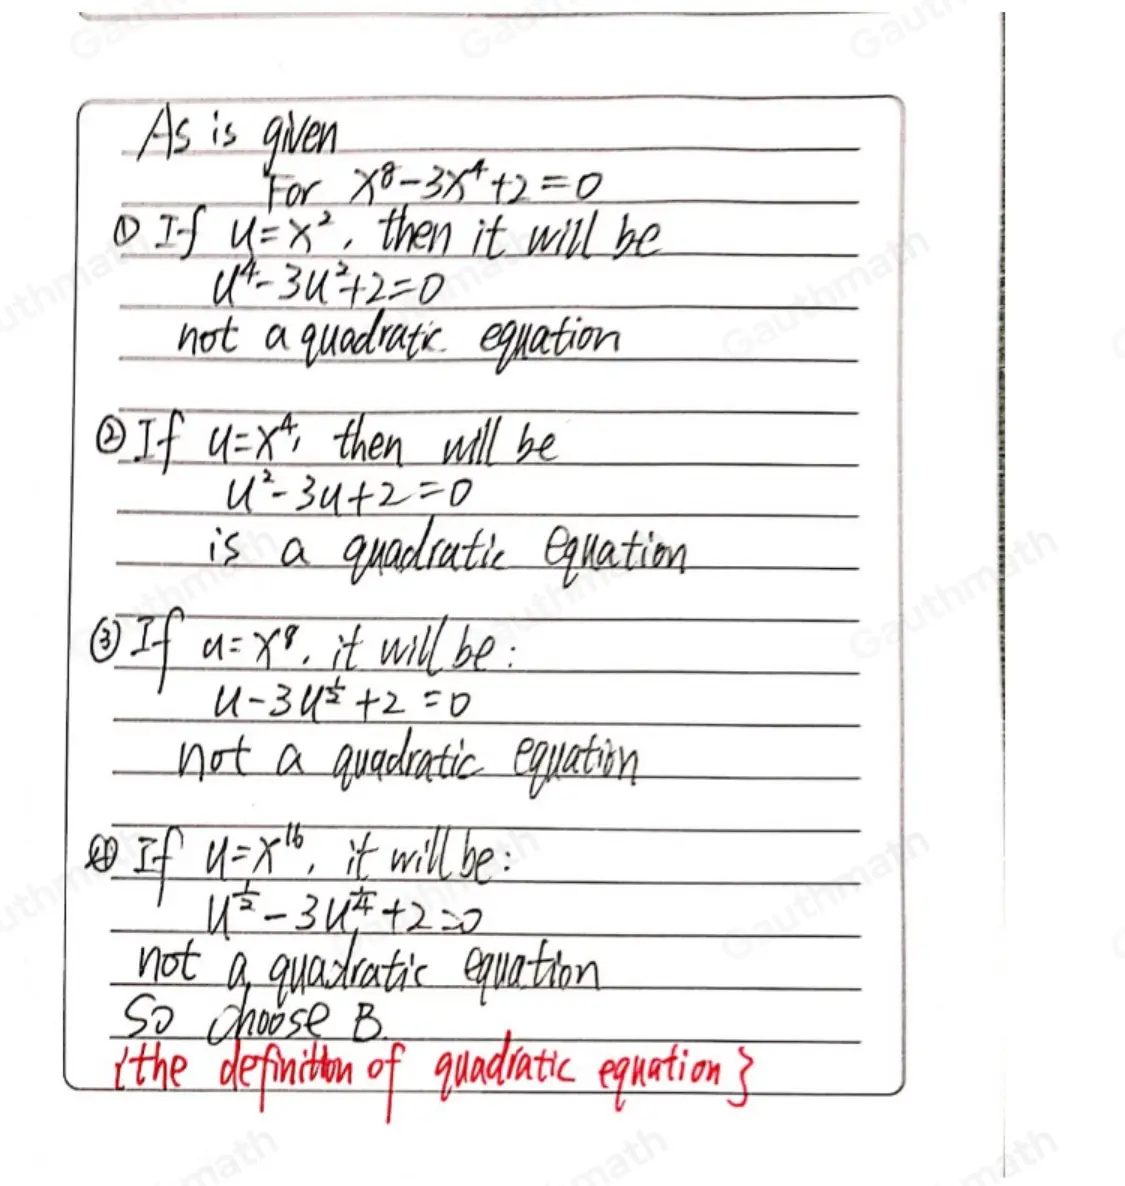 As is given
For x⁸-3x⁴+2=0
① If u=x², then it will be
u⁴-3u²+2=0
not a quadratic equation
② If u=x⁴, then will be
u²-3u+2=0
is a quadratic equation
③ If u=x⁸, it will be:
u-3u^½+2=0
not a quadratic equation
④ If u=x¹⁶, it will be:
u^½-3u^¼+2=0
not a quadratic equation
So choose B.
{the definition of quadratic equation}
Gauthmath